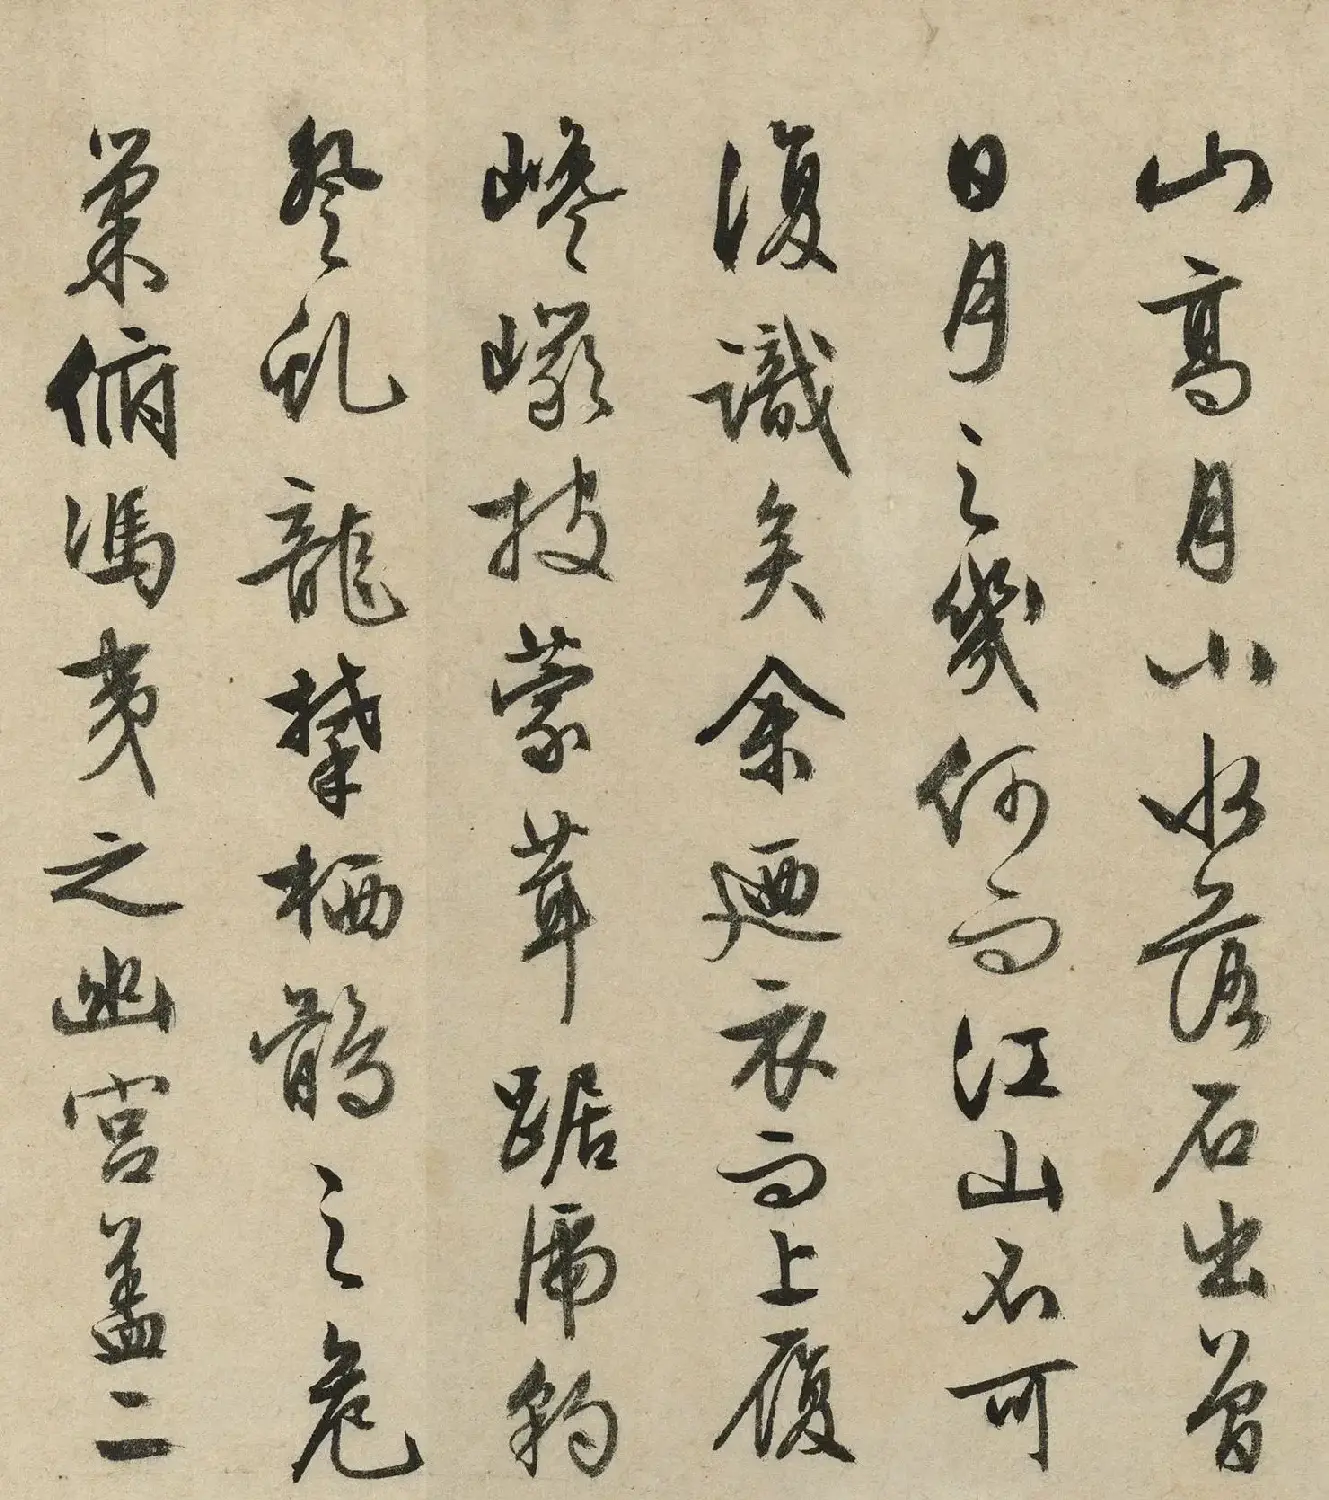 山高月小水落石出曾
日月之幾何而江山不可
復識矣余迺衣而上履
巉巖披蒙茸踞虎豹
登虬龍攀栖鶻之危
巢俯馮夷之幽宮蓋二